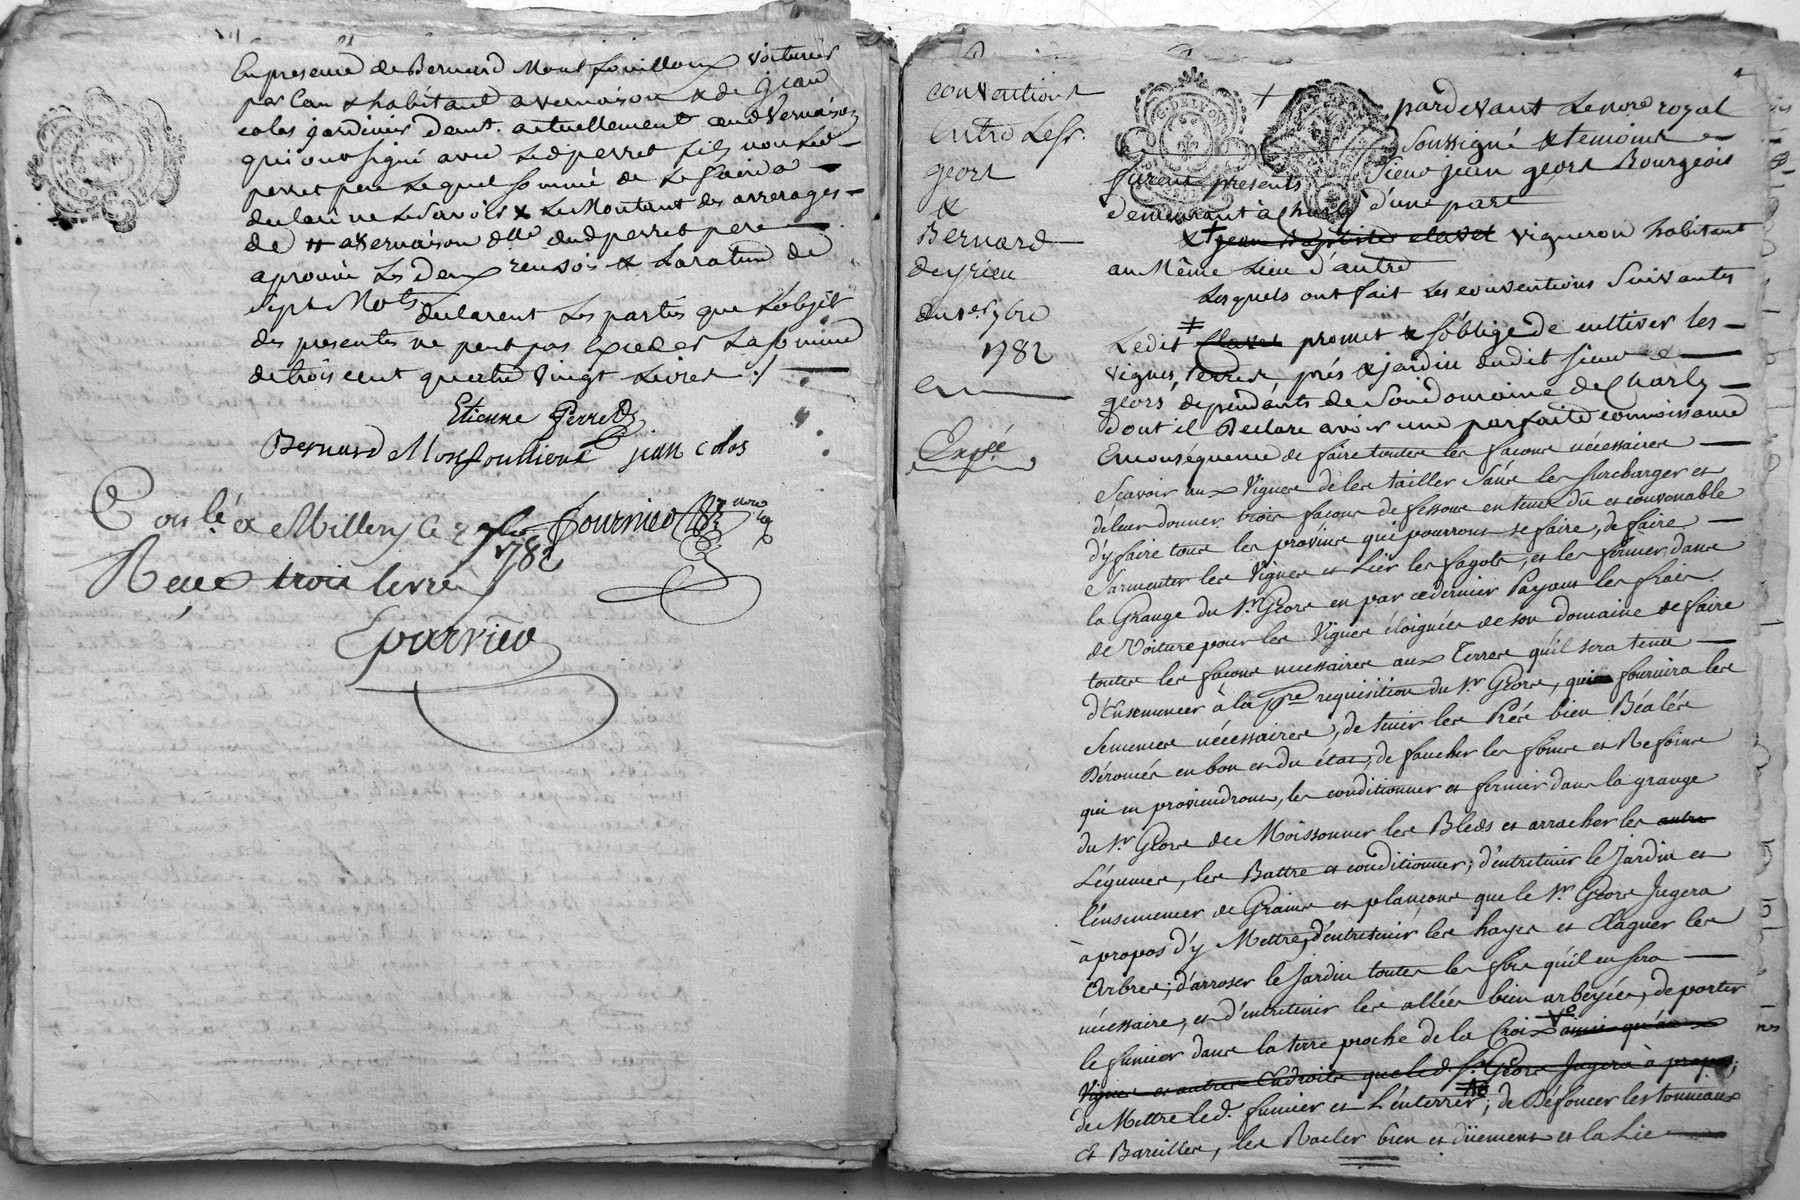 En presence de Bernard Montfouilloux voiturier
par eau & habitant a vernaison & de jean
colas jardinier demt. actuellement aud Vernaison
qui ont signé avec led perret fils non led
perret pere lequel sommé de le faire a
declaré ne le savoir & le Montant des arrerages
de # a vernaison dlle dud perret pere
aprouvé les deux renvois & la rature de
sept Mots
declarent les partis que l'objet
des presentes ne peut pas exceder la somme
de trois cent quatre vingt livres ./
Etienne Perret
Bernard Monfoullieux jean colas
Conlé a Millery le 2 7bre 1782
Fournier nore
Reçu trois livre
Eparvier
conventions
entre le sr
geors
&
Bernard
deyrieu
du 1er 7bre
1782
Expée
pardevant le nore royal
soussigné & temoins
furent presents sieur jean geors Bourgeois
demeurant à charly d'une part
& + jean Baptiste clavel vigneron habitant
au Même lieu d'autre
lesquels ont fait les conventions suivantes
Ledit clavel promet & s'oblige de cultiver les
vignes, terres, prés & jardin dudit sieur
geors, dependants de son domaine de Charly
dont il Declare avoir une parfaite connoissance
En conséquence de faire toutes les façons nécessaires
Sçavoir aux Vignes de les tailler sans les surcharger et
de leur donner trois façons de fessous en tems dû et convenable
d'y faire tous les provins qui pourront se faire, de faire
Sarmenter les Vignes et Lier les fagots, et les fermer dans
la Grange du Sr. Geors en par ce dernier Payant les frais
de Voiture pour les Vignes éloignées de son domaine de faire
toutes les façons necessaires aux Terres qu'il sera tenu
d'Ensemencer à la pre requisition du Sr Geors, qui fournira les
Semences nécessaires, de tenir les Prés bien Béalés
Déromés en bon et du état, de faucher les foins et Refoins
qui en proviendront, les conditionner et fermer dans la grange
du Sr Geors de Moissonner les Bleds et arracher les autres
Légumes, les Battre et conditionner; d'entretenir le Jardin et
l'ensemencer de Graines et plançons que le Sr Geors Jugera
à propos d'y Mettre, d'entretenir les hayes et Elaguer les
Arbres; d'arroser le Jardin toutes les fois qu'il en sera
nécessaire, et d'entretenir les allées bien arbeyées, de porter
le fumier dans la terre proche de la Croix ainsi qu'aux
Vignes et autres Endroits que led. Sr Geors Jugera à propos;
de Mettre led. fumier et L'enterrer; de Défoncer les tonneaux
et Bareilles, les Racler bien et düement et la Lie